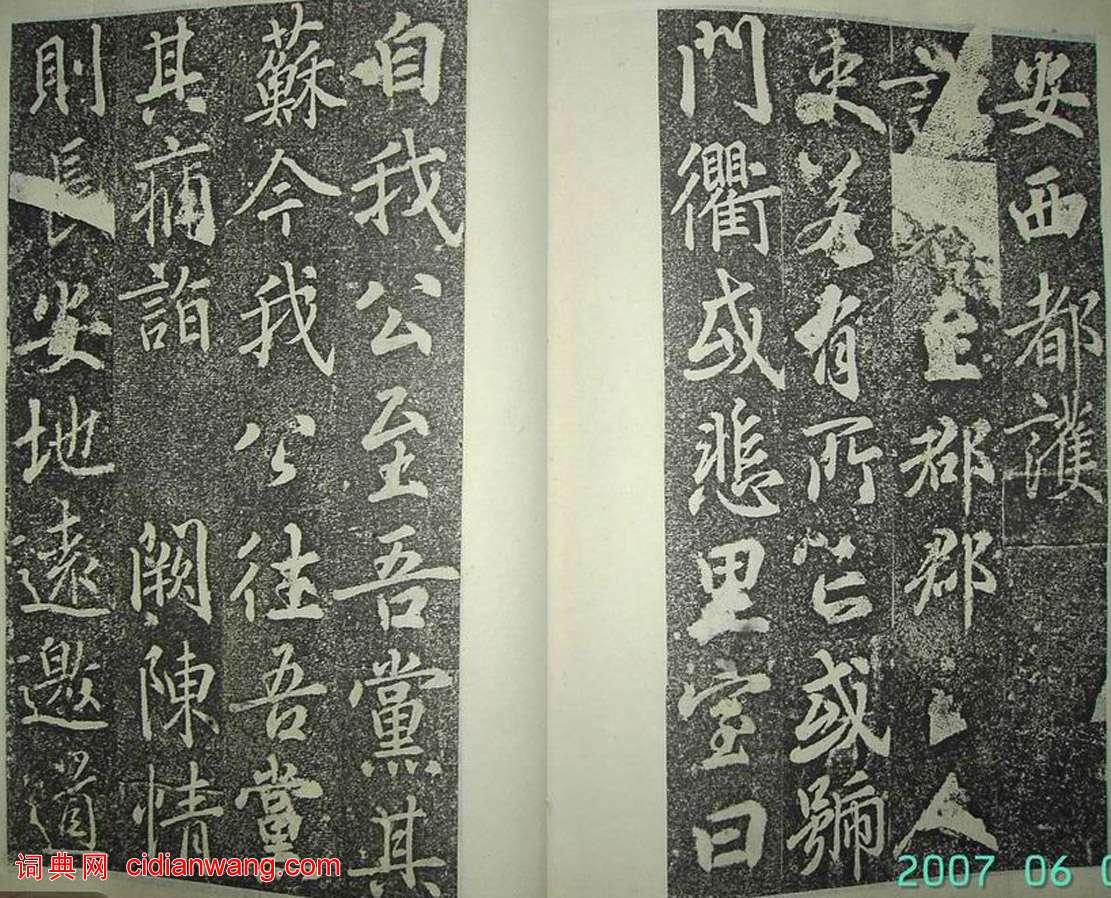 安西都護
詔至郡郡人
吏若有所亡或號
門衢或悲里室曰
自我公至吾黨其
蘇今我公往吾當
其痡詣闕陳情
則長安地遠邀道
词典网 cidianwang.com
2007 06 0